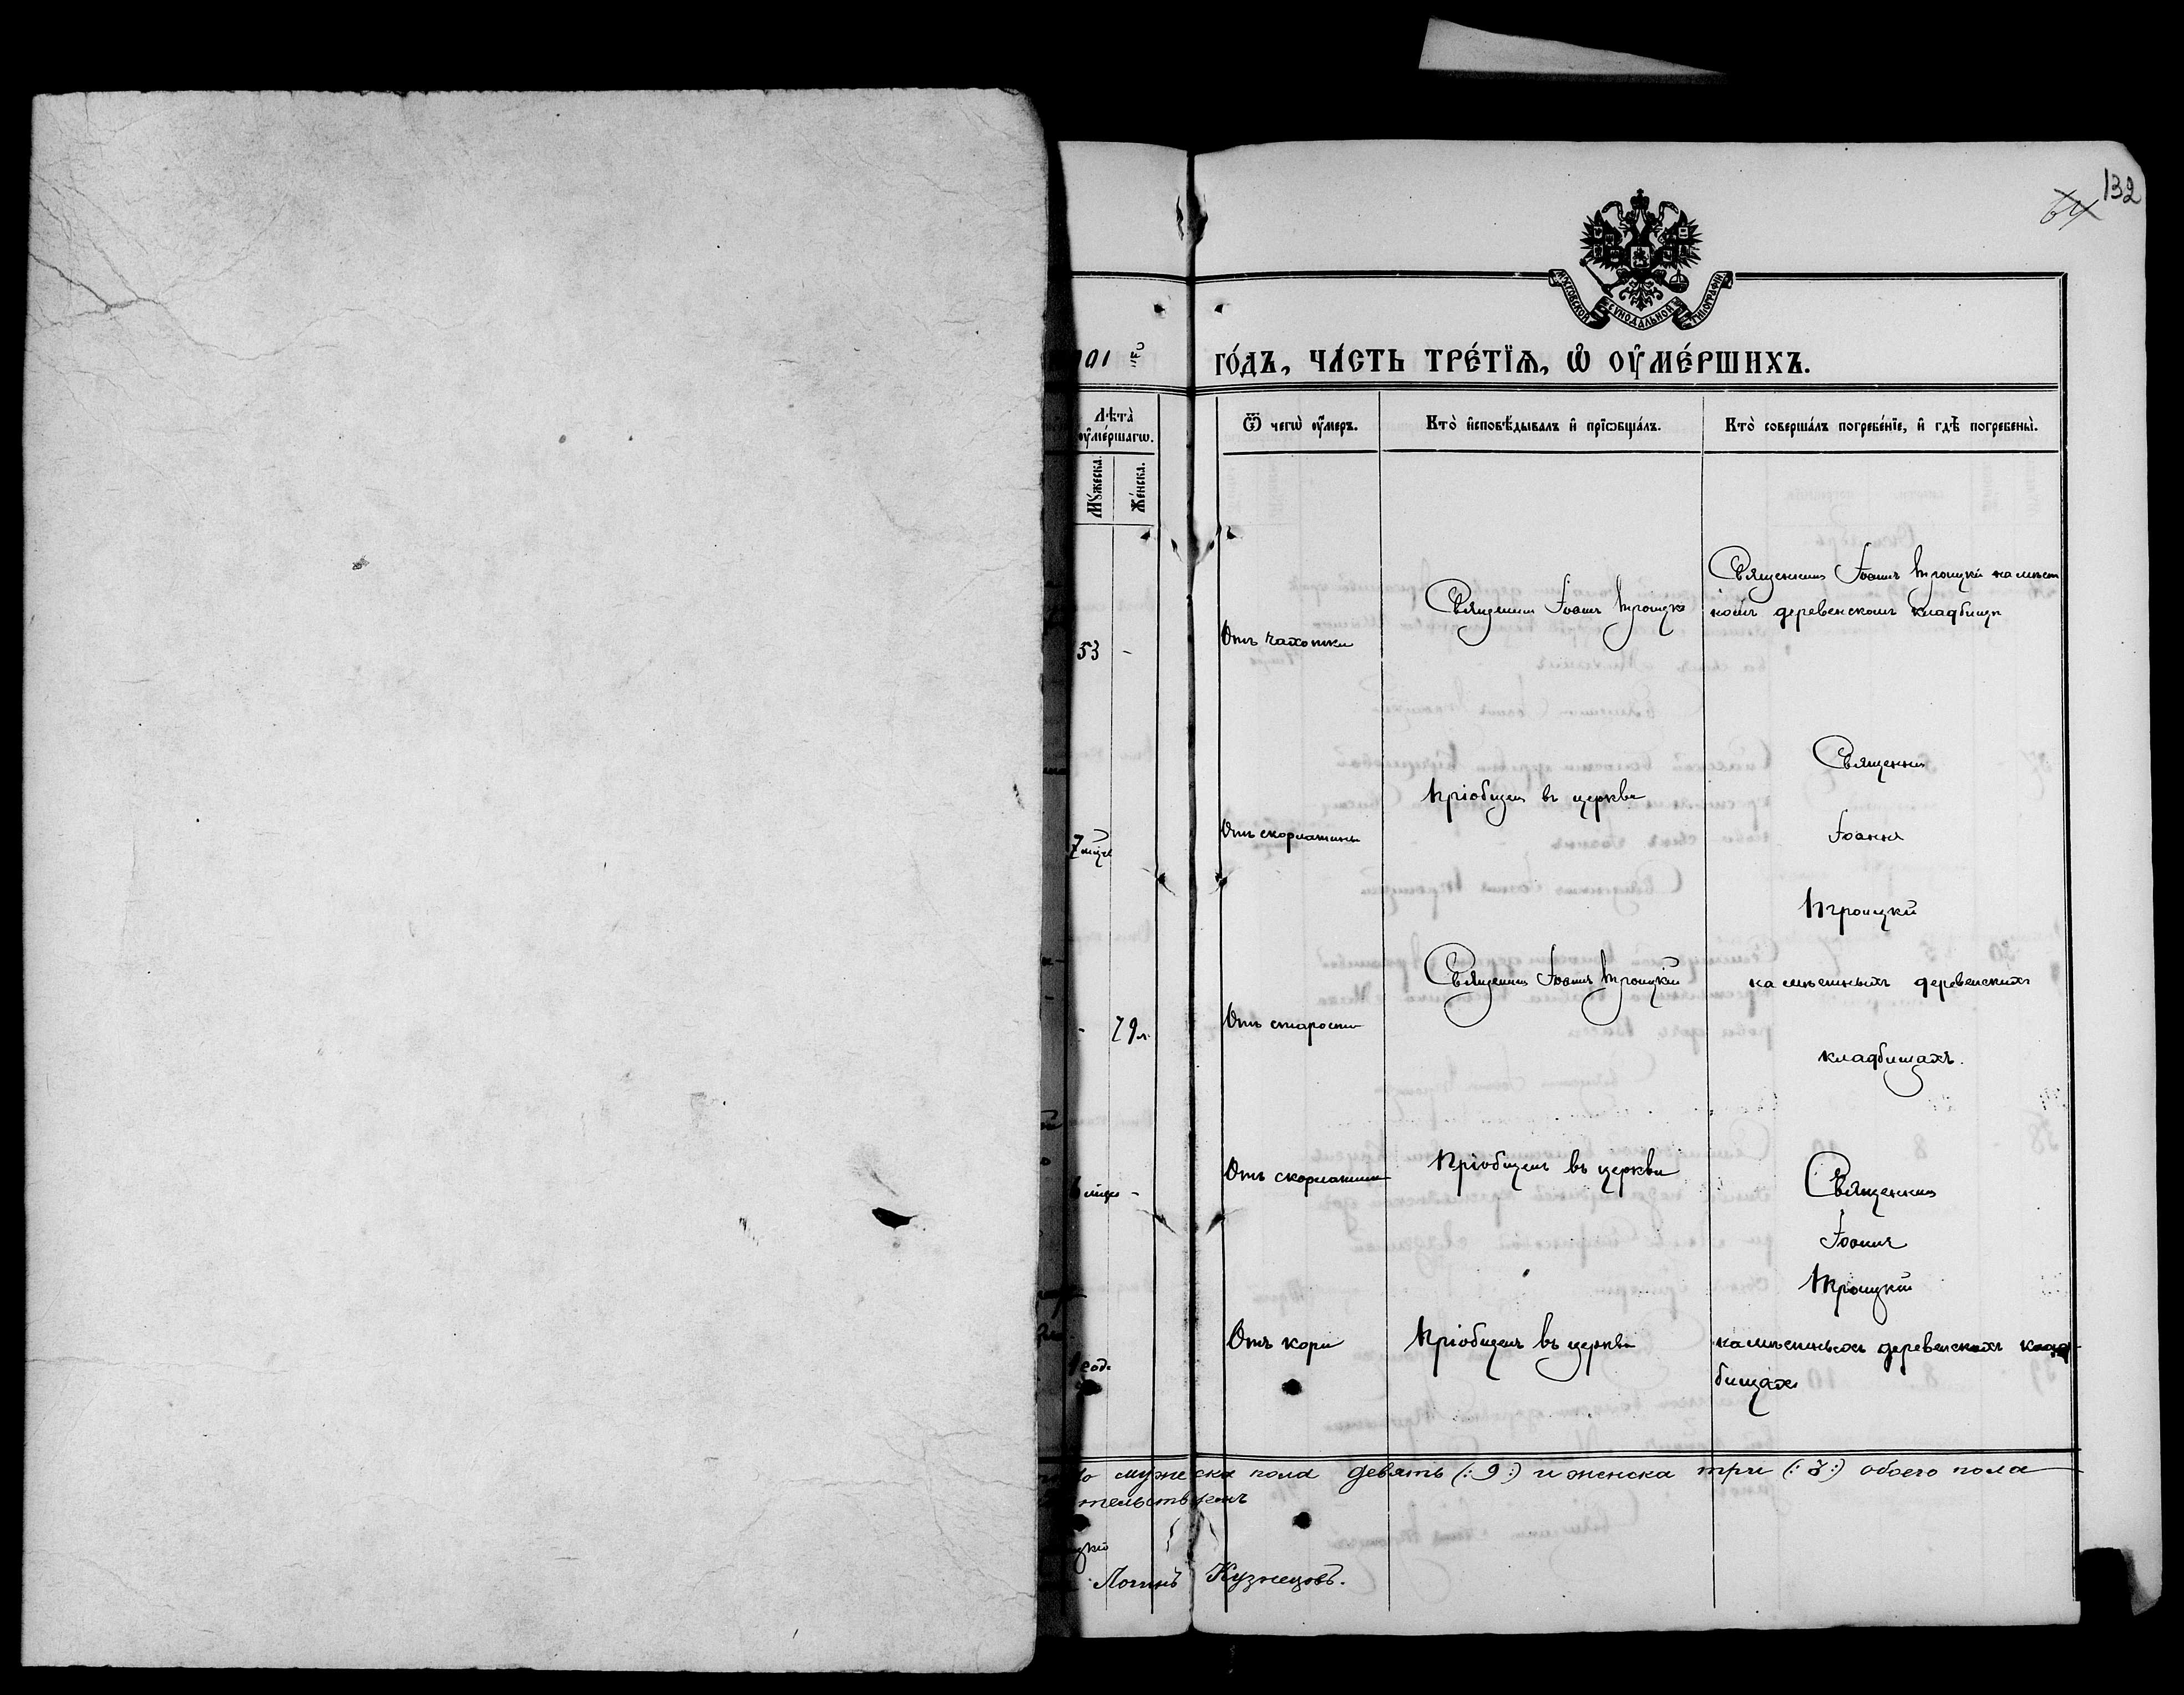 132
64
МОСКОВСКОЙ СѴНОДАЛЬНОЙ ТИПОГРАФІИ
го́дъ, ча́сть тре́тїѧ, ѡ҆ ᲂу҆ме́ршихъ.
Лѣта̀
ᲂу҆ме́ршагѡ.
Мꙋ́жеска.
Же́нска.
Ѿ чегѡ̀ ᲂу҆́меръ.
Кто̀ и҆сповѣ́дывалъ и҆ прїѡбща́лъ.
Кто̀ соверша́лъ погребе́нїе, и҆ гдѣ̀ погребены̀.
53 -
Отъ чахотки
Священникъ Іоаннъ Троицкій
Священникъ Іоаннъ Троицкій на мѣст
номъ деревенскомъ кладбищѣ
7 мѣс
Отъ скорлатины
Пріобщенъ въ церкви
Священникъ
Іоаннъ
Троицкій
- 79 л.
Отъ старости
Священникъ Іоаннъ Троицкій
на мѣстныхъ деревенскихъ
кладбищахъ.
6 мѣс -
Отъ скорлатины
Пріобщенъ въ церкви
Священникъ
Іоаннъ
Троицкій
1 год.
Отъ кори
Пріобщенъ въ церкви
на мѣстныхъ деревенскихъ клад
бищахъ
мужеска пола девять (: 9 :) и женска три (: 3 :) обоего пола
Логинъ Кузнецовъ.